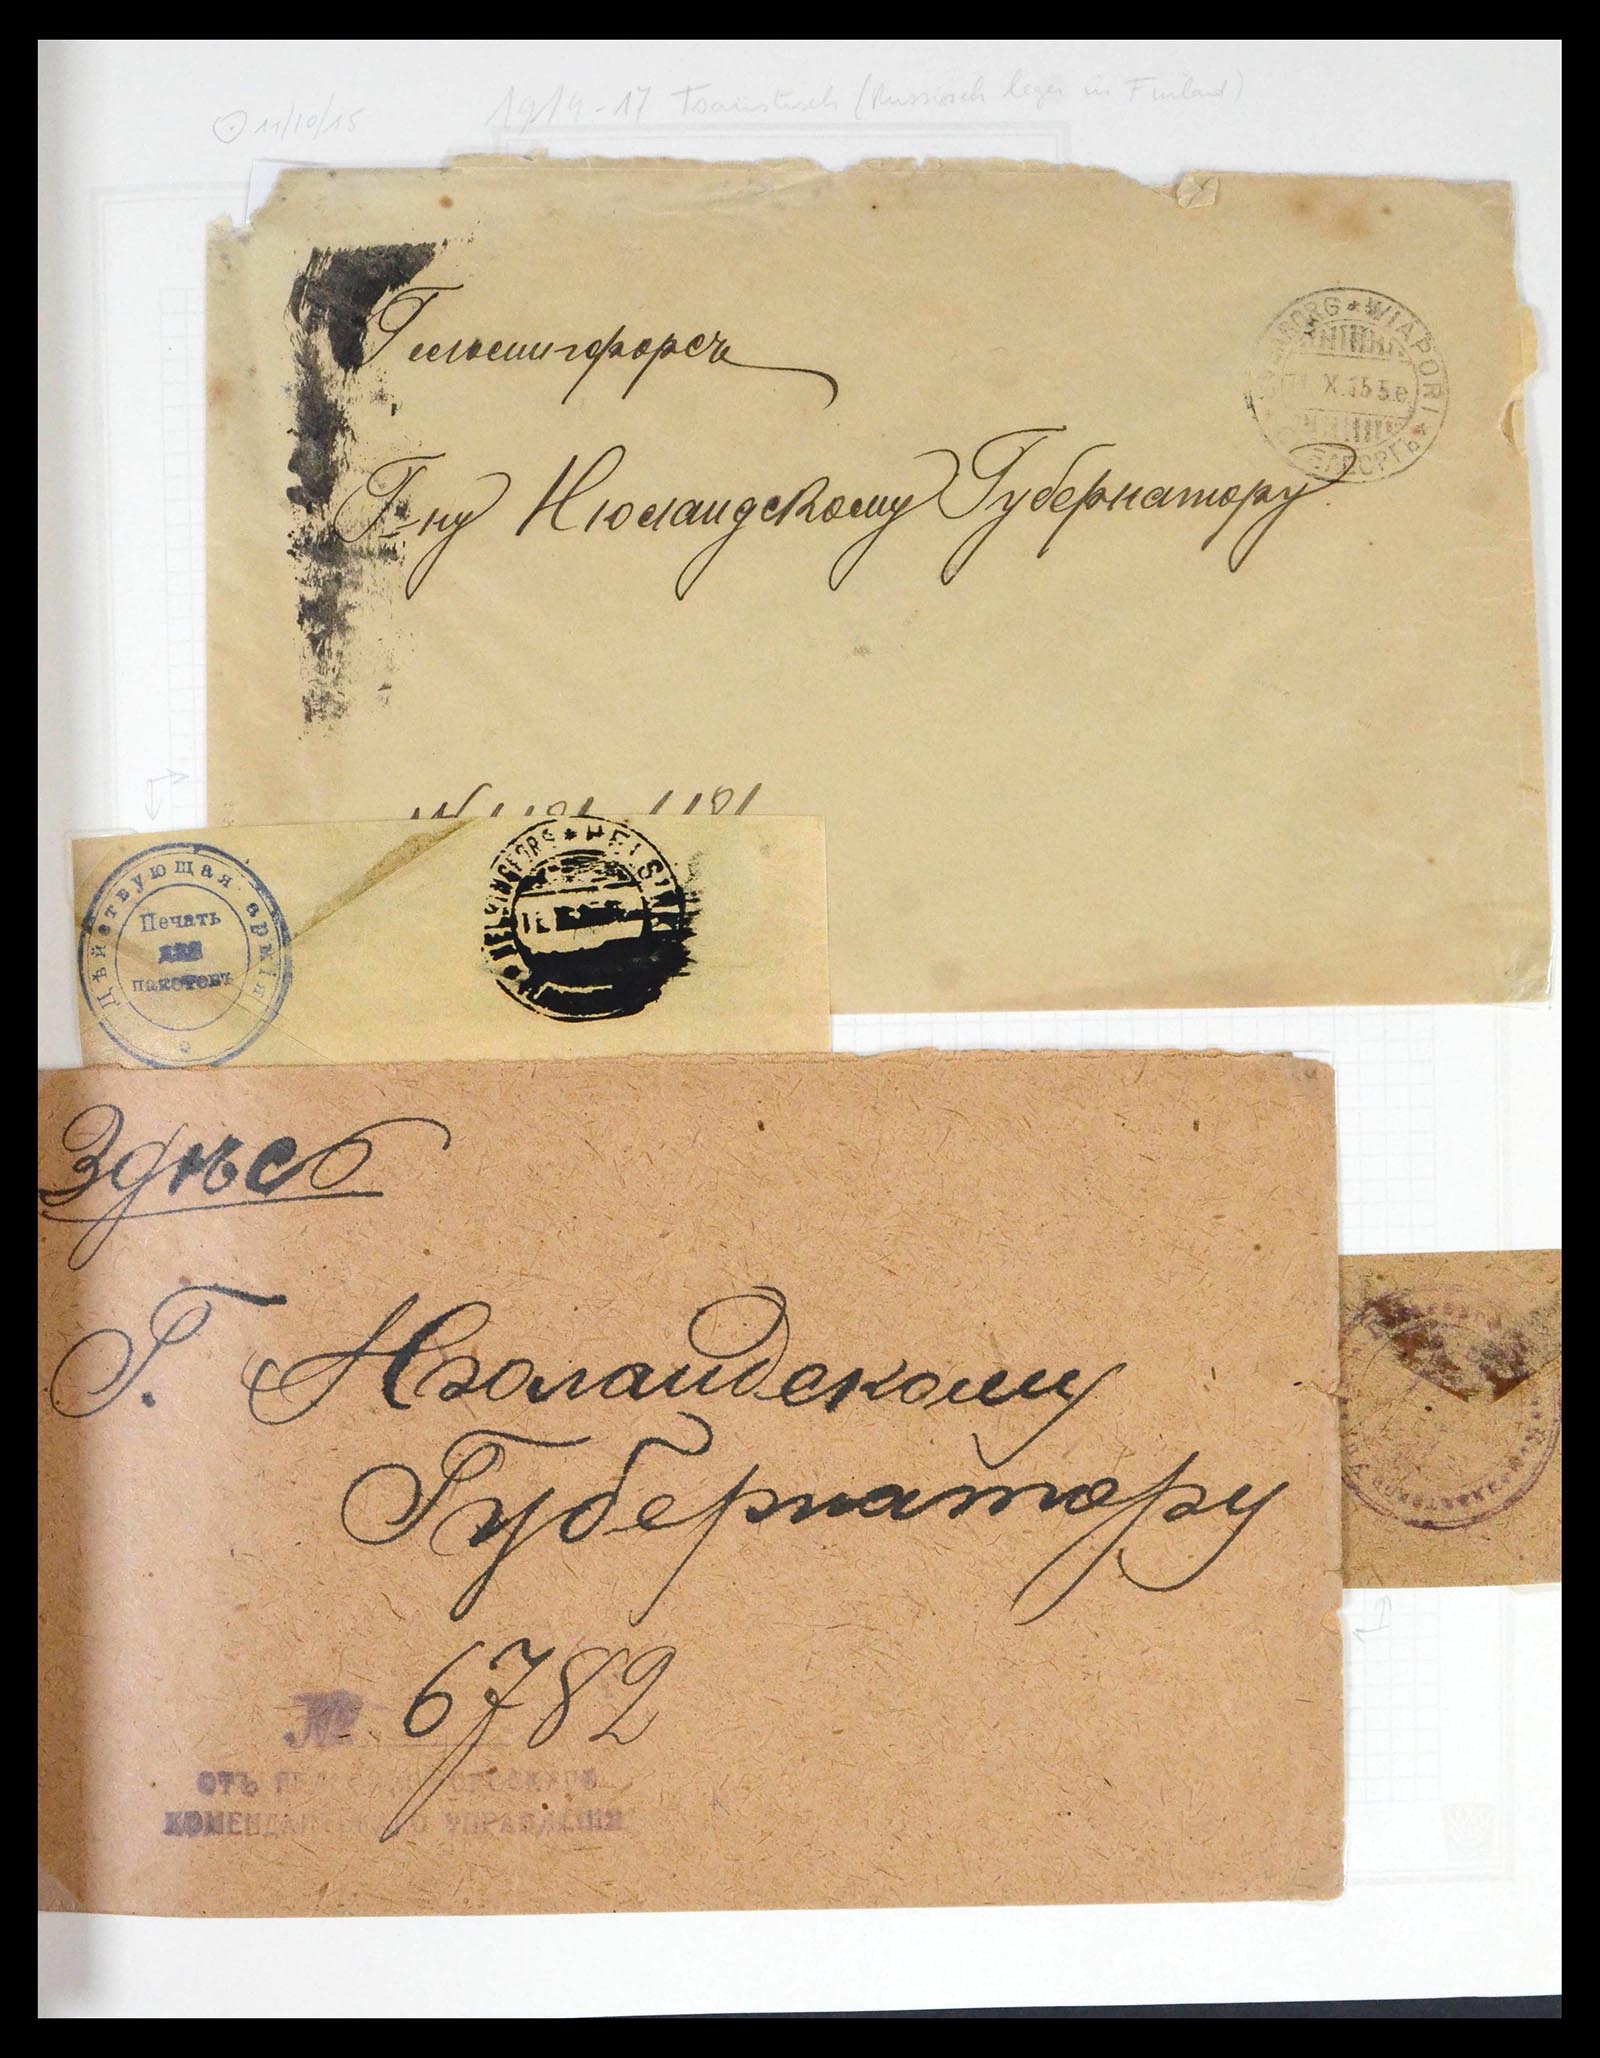 11/10/15
1914-17 Tsaristisch (Russisch leger in Finland)
Гельсингфорсъ
SVEABORG * WIAPORI *
X.15 5 e
СВЕАБОРГЪ
Г-ну Нюландскому Губернатору.
Дѣйствующая армія
Печать
для
пакетовъ
HELSINGFORS * HELSINKI
Здѣсь
Г. Нюландскому
Губернатору
№ 6782
ОТЪ
КОМЕНДАНТСКАГО УПРАВЛЕНІЯ